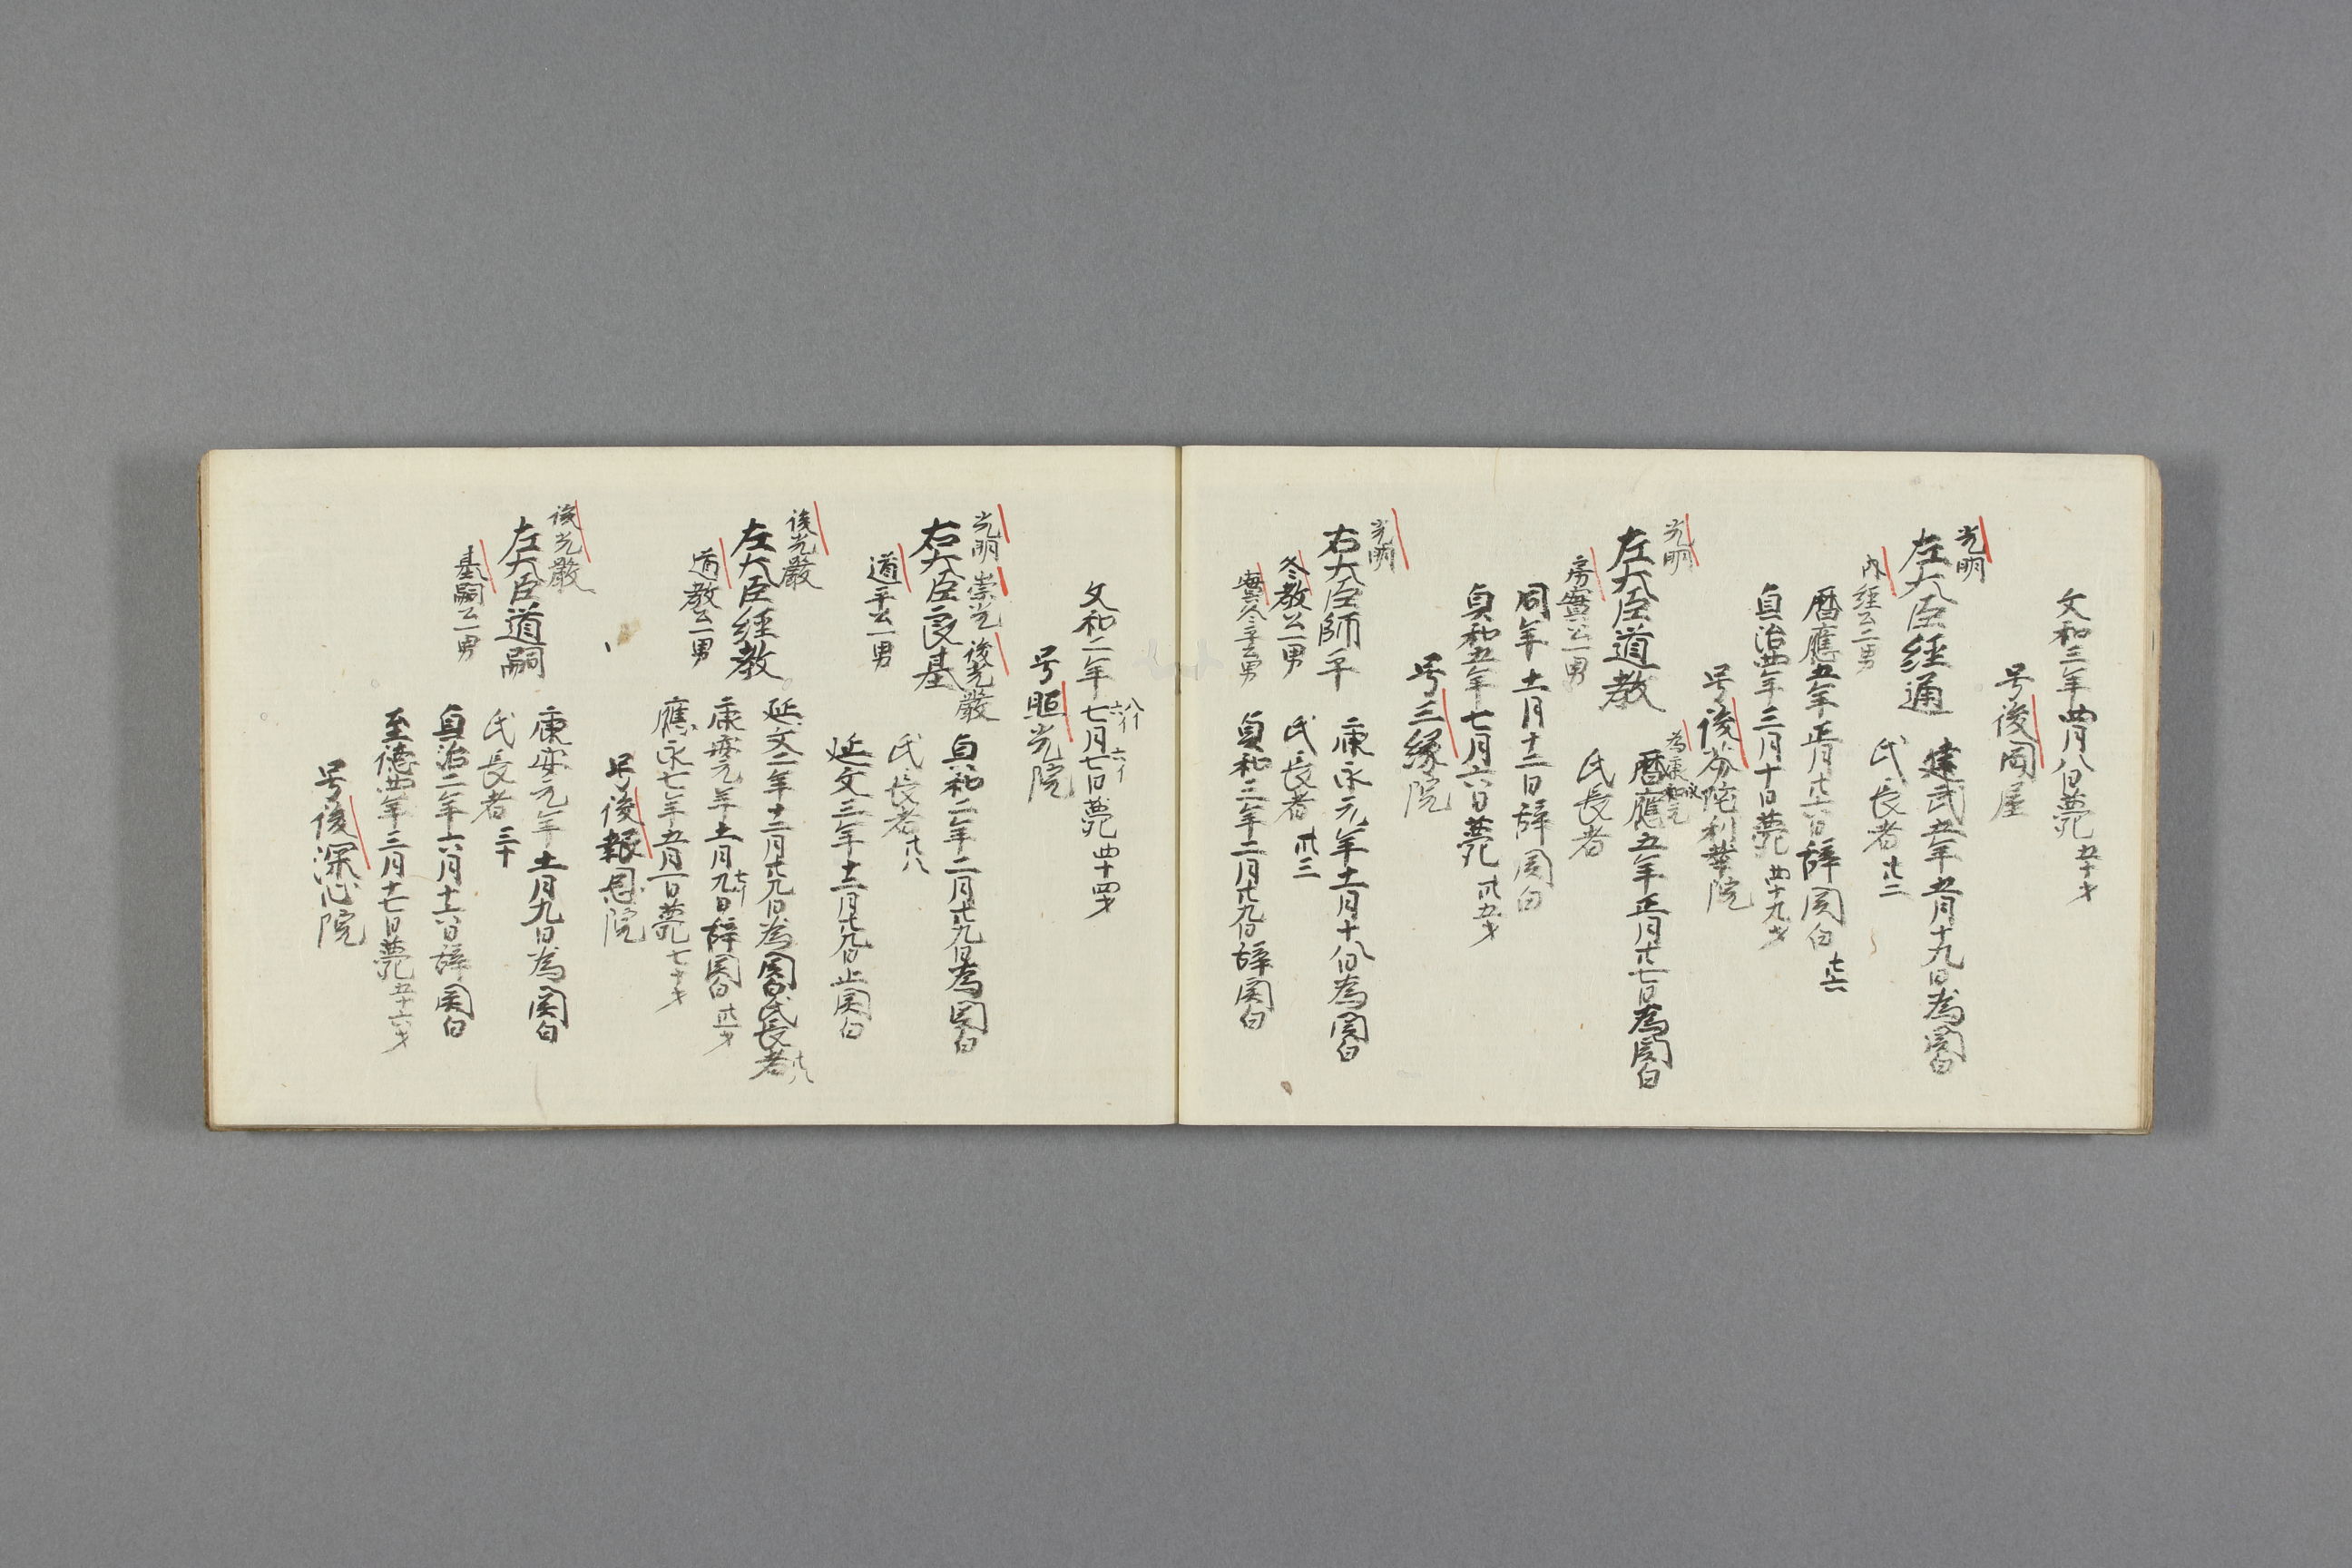 文和三年四月八日薨五十才
号後岡屋
光明
左大臣経通
内経公二男
建武五年五月十九日為関白
氏長者廿二
暦應五年正月廿六日辞関白廿六
貞治四年三月十日薨四十九才
号後芬陀利華院
光明
左大臣道教
房実公一男
暦應五年正月廿七日為関白
氏長者
同年十一月十二日辞関白
貞和五年七月六日薨卅五才
号三縁院
光明
右大臣師平
冬教公一男
実冬平公男
康永元年十一月十八日為関白
氏長者卅三
貞和二年二月廿九日辞関白
文和二年七月七日薨四十四才
号照光院
光明 崇光 後光嚴
右大臣良基
道平公一男
貞和二年二月廿九日為関白
氏長者廿八
延文三年十二月廿九日止関白
後光嚴
左大臣経教
道教公一男
延文三年十二月廿九日為関白氏長者廿八
康安元年十一月九日辞関白卅一才
應永七年五月一日薨七十才
号後報恩院
後光嚴
左大臣道嗣
基嗣公一男
康安元年十一月九日為関白
氏長者三十
貞治二年六月十六日辞関白
至徳四年三月十七日薨五十六才
号後深心院